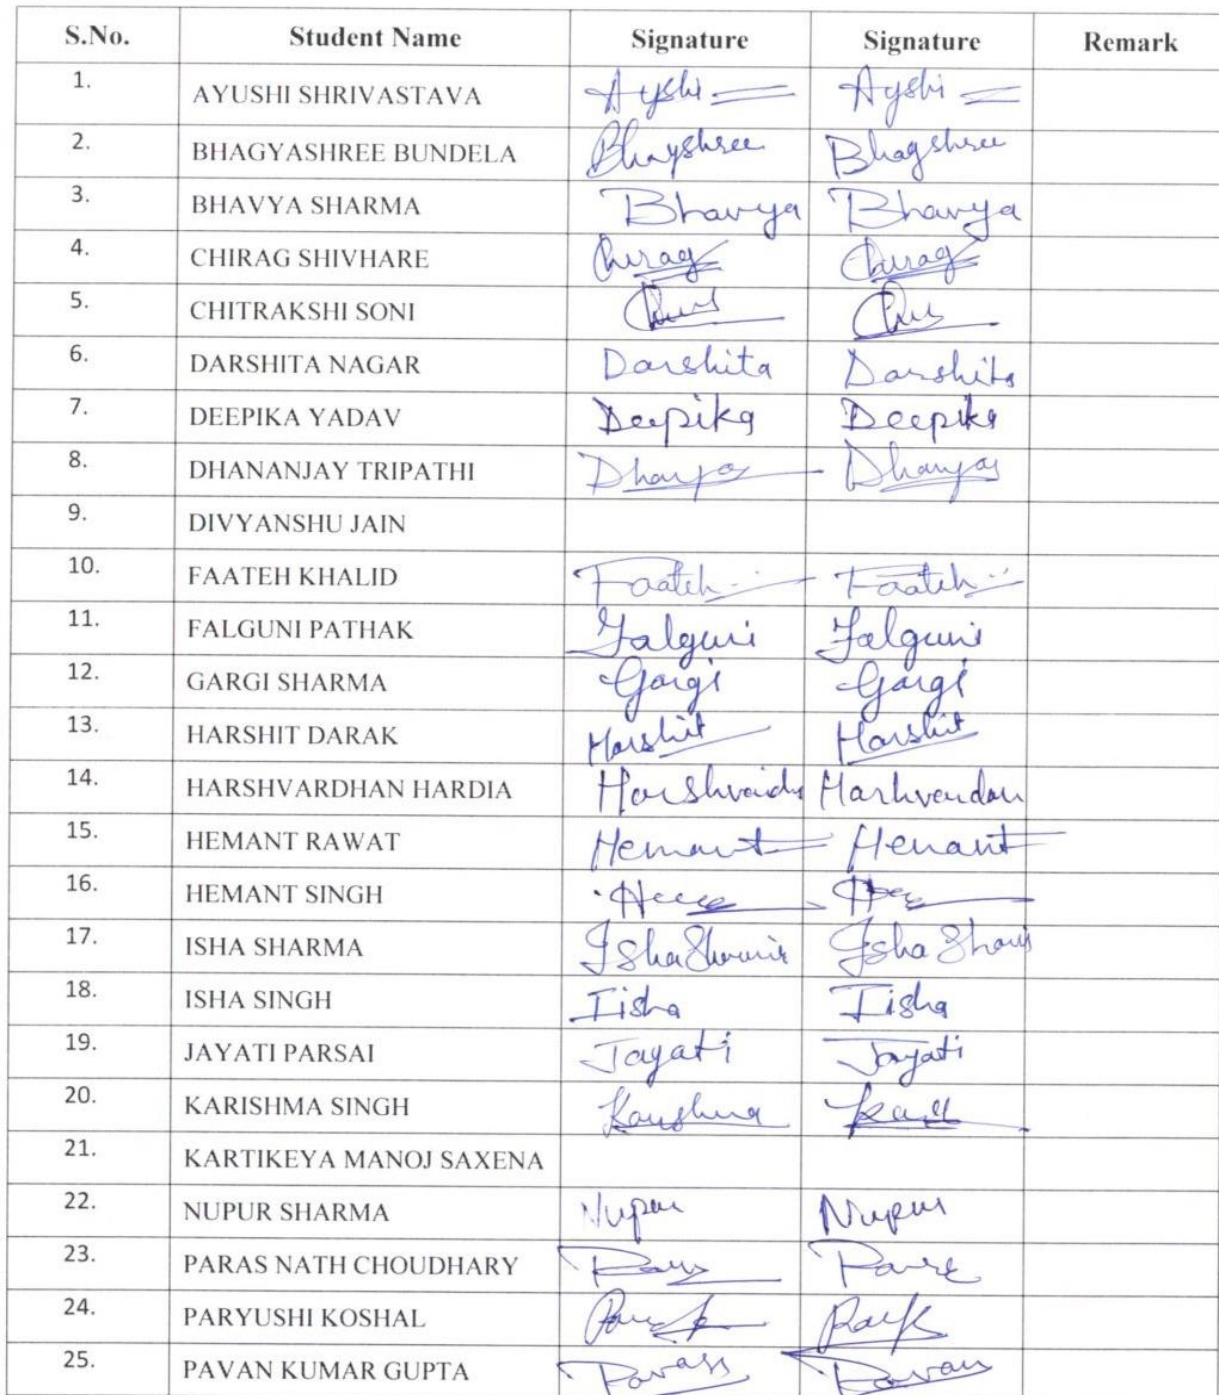 S.No. Student Name Signature Signature Remark
1. AYUSHI SHRIVASTAVA Ayshi Ayshi
2. BHAGYASHREE BUNDELA Bhagshree Bhagshree
3. BHAVYA SHARMA Bhavya Bhavya
4. CHIRAG SHIVHARE Chirag Chirag
5. CHITRAKSHI SONI
6. DARSHITA NAGAR Darshita Darshita
7. DEEPIKA YADAV Deepika Deepika
8. DHANANJAY TRIPATHI
9. DIVYANSHU JAIN
10. FAATEH KHALID Faateh Faateh
11. FALGUNI PATHAK Falguni Falguni
12. GARGI SHARMA Gargi Gargi
13. HARSHIT DARAK Harshit Harshit
14. HARSHVARDHAN HARDIA
15. HEMANT RAWAT Hemant Hemant
16. HEMANT SINGH
17. ISHA SHARMA Isha Sharma Isha
18. ISHA SINGH Iisha Iisha
19. JAYATI PARSAI Jayati Jayati
20. KARISHMA SINGH Karishma
21. KARTIKEYA MANOJ SAXENA
22. NUPUR SHARMA Nupur Nupur
23. PARAS NATH CHOUDHARY
24. PARYUSHI KOSHAL
25. PAVAN KUMAR GUPTA Pavan